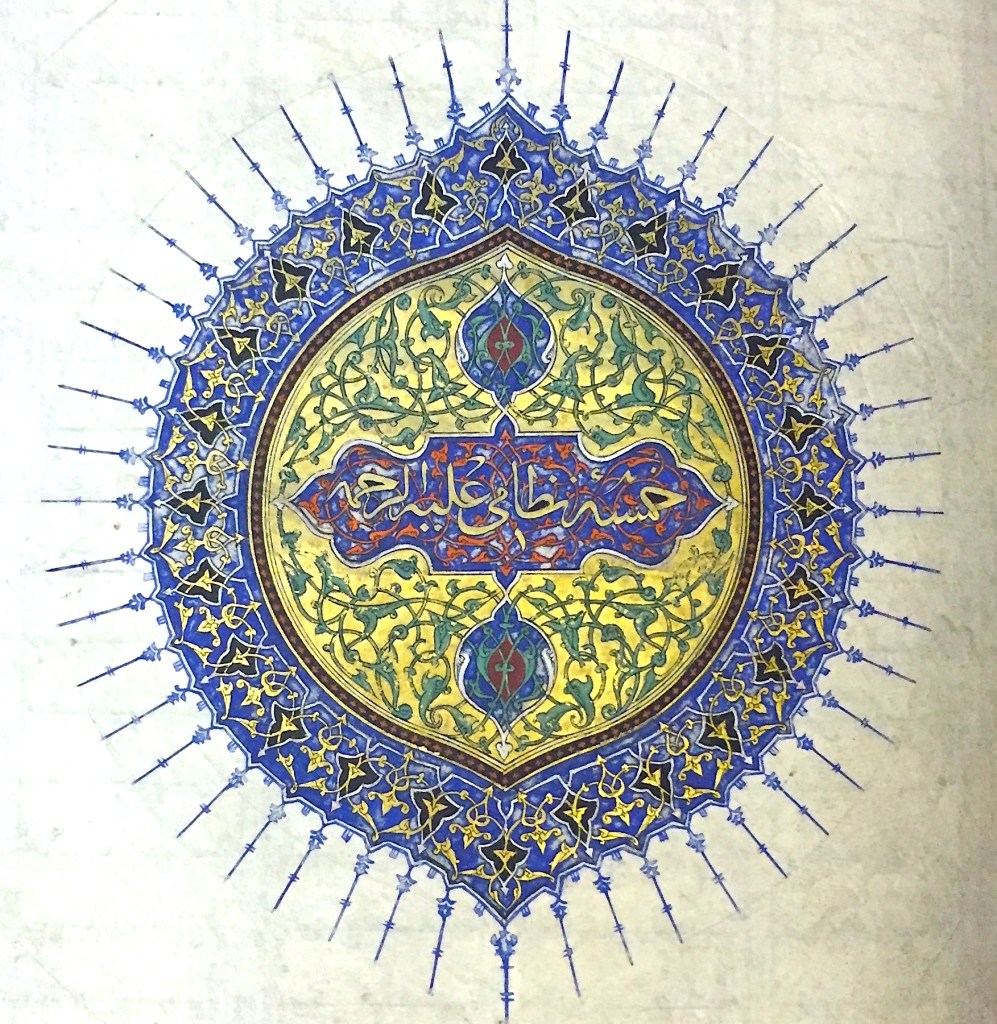 خمسه نظامی علیه الرحمه